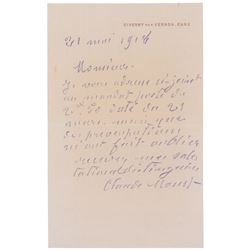 GIVERNY PAR VERNON, EURE
21 mai 1914
Monsieur
Je vous adresse ci-joint
un mandat poste de
daté du 21
mars
des préoccupations
m'ont fait oublier
recevez mes salu
tations distinguées
Claude Monet